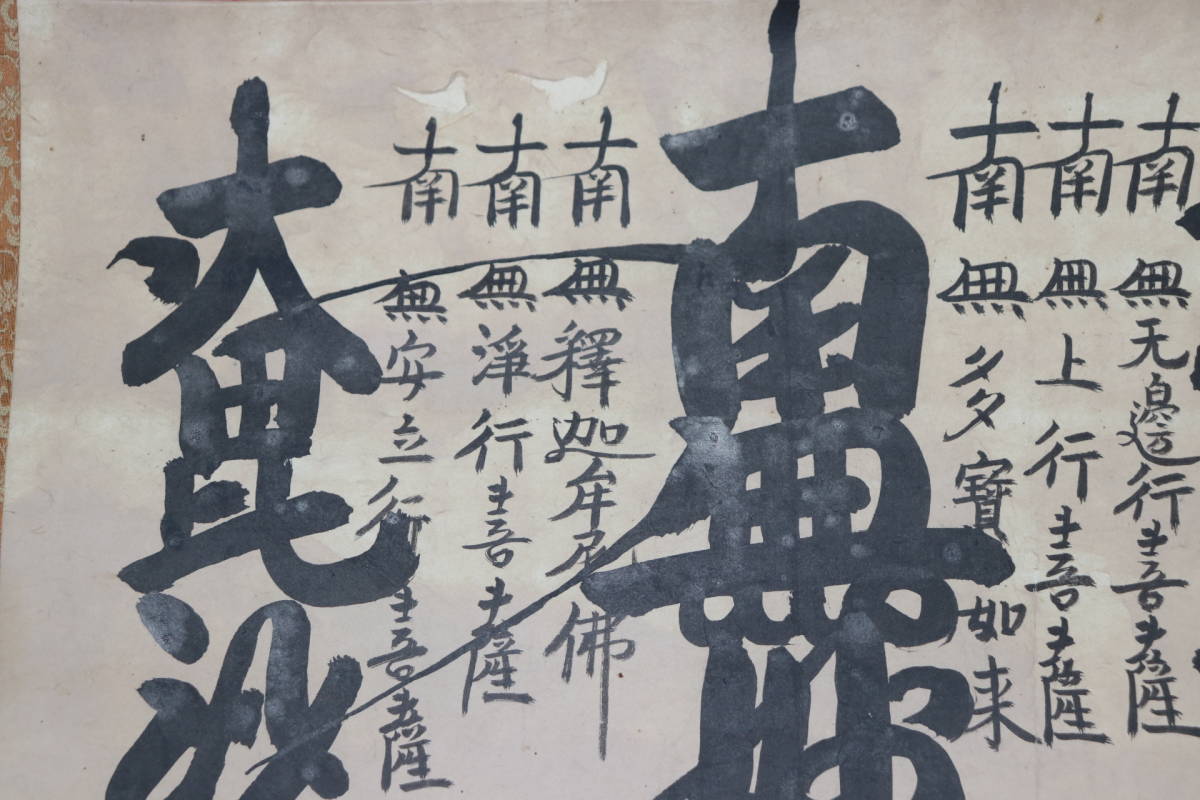 南無无邊行菩薩
南無上行菩薩
南無多寶如来
南無妙
南無釋迦牟尼佛
南無淨行菩薩
南無安立行菩薩
大毘沙